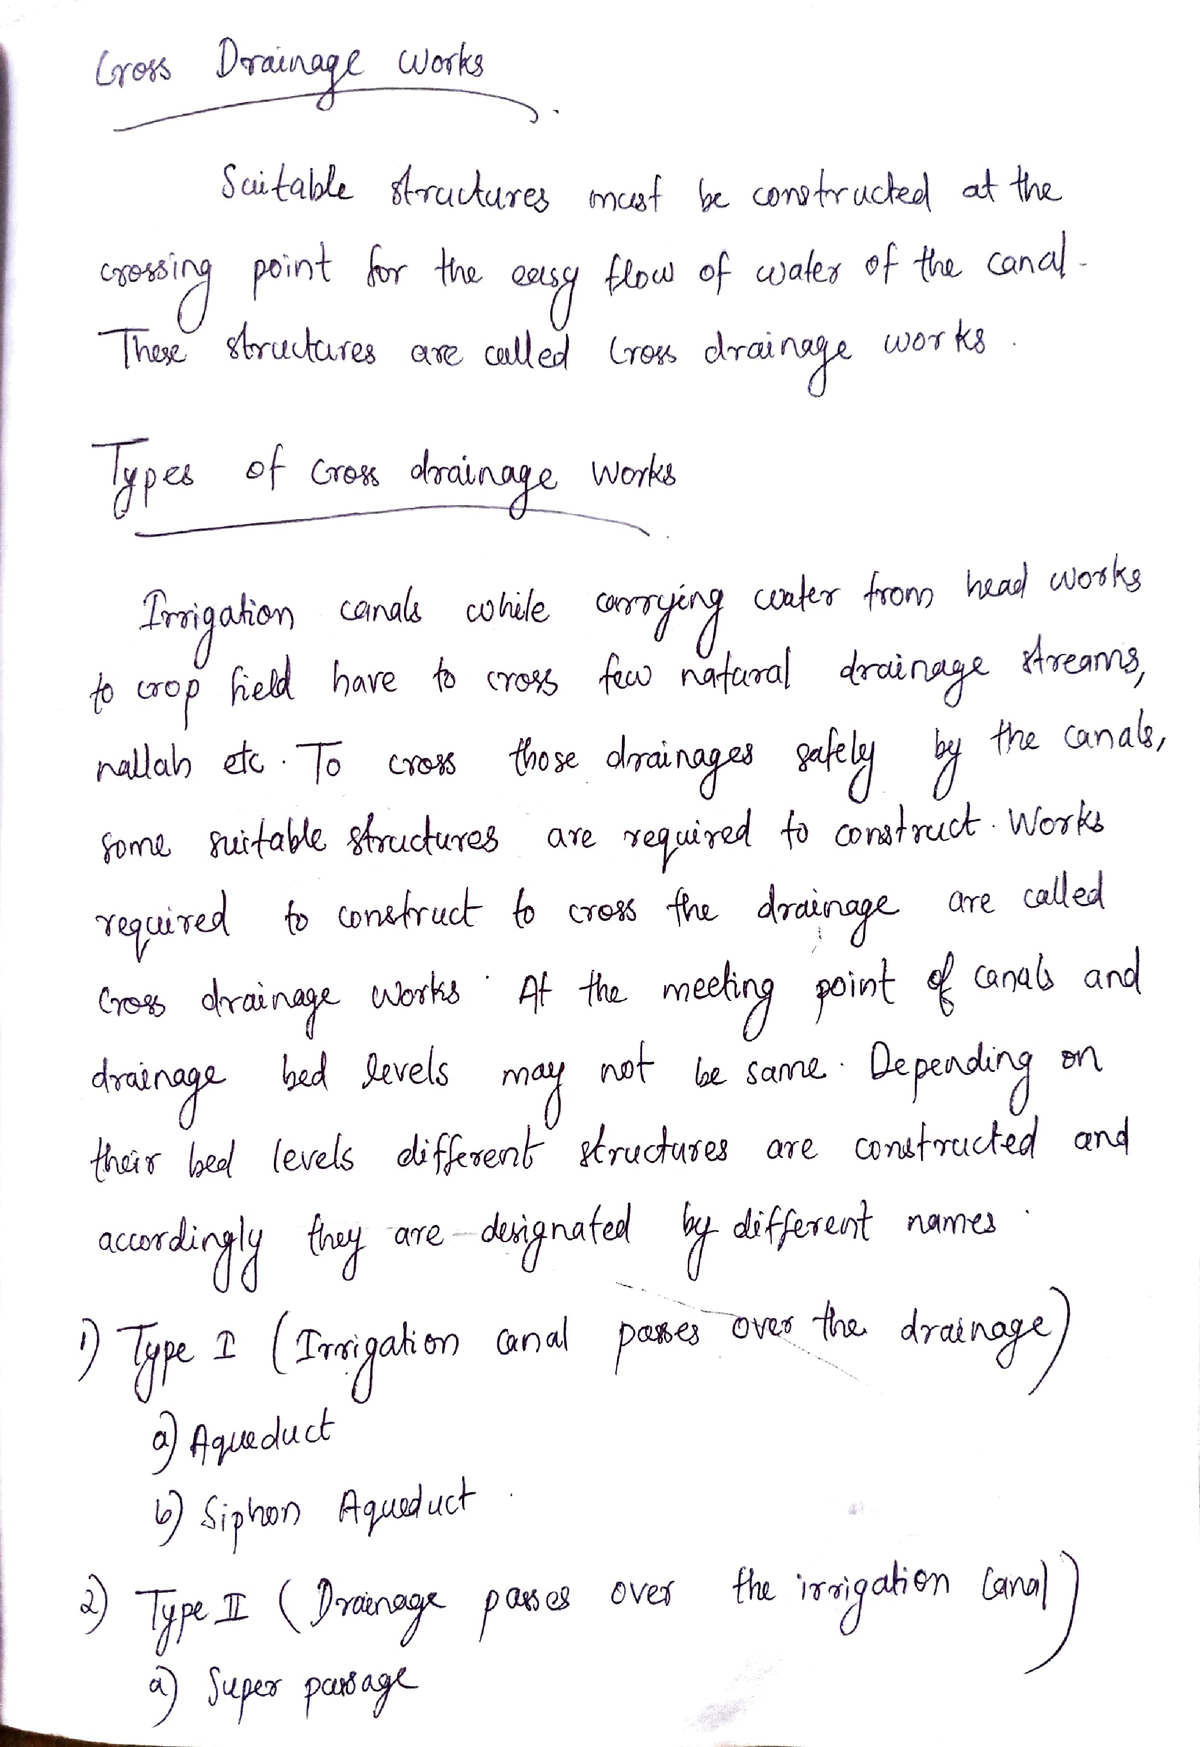 Cross Drainage Works
Suitable structures must be constructed at the
crossing point for the easy flow of water of the canal.
These structures are called Cross drainage works.
Types of Cross drainage Works
Irrigation canals while carrying water from head works
to crop field have to cross few natural drainage streams,
nallah etc. To cross those drainages safely by the canals,
some suitable structures are required to construct. Works
required to construct to cross the drainage are called
Cross drainage Works. At the meeting point of canals and
drainage bed levels may not be same. Depending on
their bed levels different structures are constructed and
accordingly they are designated by different names.
1) Type I (Irrigation canal passes over the drainage)
a) Aqueduct
b) Siphon Aqueduct.
2) Type II (Drainage passes over the irrigation Canal)
a) Super passage